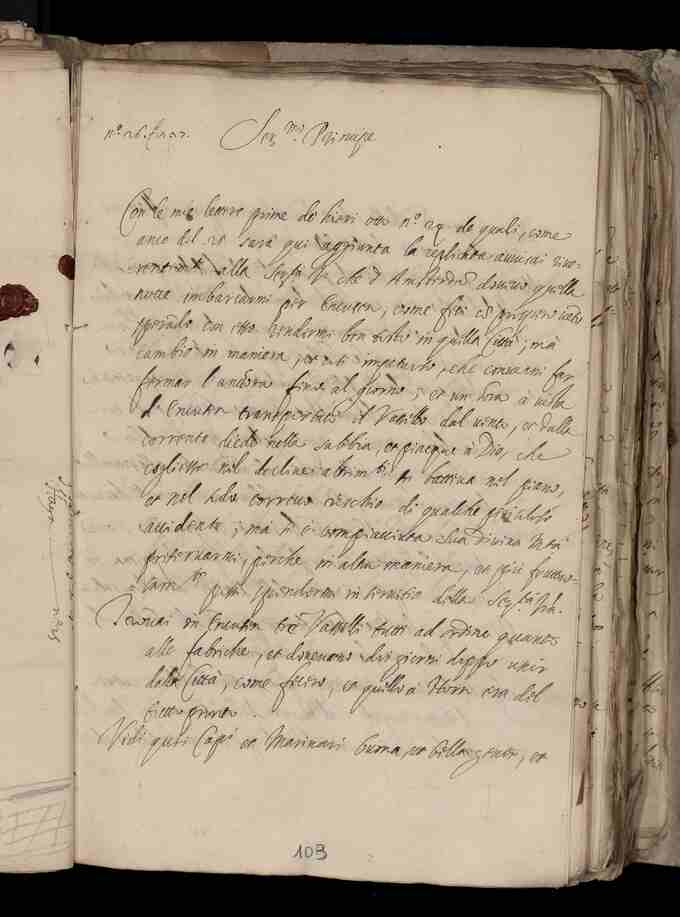 Ser.mo Principe
Con le mie lettere prime de hieri otto n.o 24 de quali, come
anco del 25 sarà qui aggiunta la replicata avvisai rive-
alla Ser.tà V.ra che d'Amsterdam dovevo quella
notte imbarcarmi per Encusen, come feci
sperando con esso rendermi ben tosto in quella Città; mà
cambiò in maniera, che convenni far
fermar l'ancora fino al giorno; et un' hora à vista
d'Encusen transportato il Vassello dal vento, et dalla
corrente diede nella sabbia, et piacque à Dio, che
nel declinar altrim.ti si batteva nel piano,
et nel correvo rischio di qualche
accidente; mà si è compiacciuta Sua Divina M.tà
preservarmi, perche in altra maniera, et più fruttuo-
sam.te possi spendermi in servitio della Ser.tà V.ra.
Trovai in Encusen trè Vasselli tutti ad ordine quanto
alle fabriche, et dovevano doi giorni doppo uscir
dalla Città, come fecero, et quello à Horn era del
tutto pronto.
Vidi quei Capi et Marinari buona, et bella gente, et
103